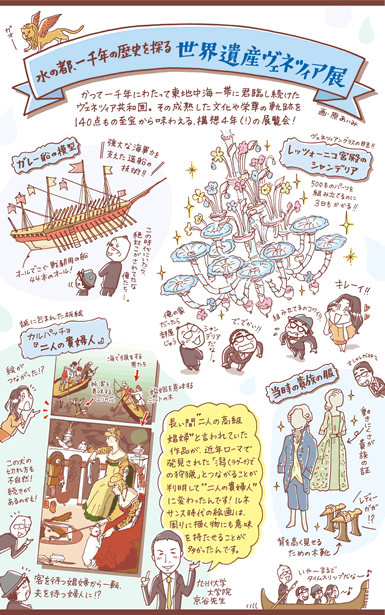 ガオー
水の都、一千年の歴史を探る
世界遺産ヴェネツィア展
かつて一千年にわたって東地中海一帯に君臨し続けた
ヴェネツィア共和国。その成熟した文化や栄華の軌跡を
140点もの至宝から味わえる、構想4年(!)の展覧会!
画・原あいみ
ガレー船の模型
強大な海軍力を
支えた造船の
技術!!
オールでこぐ戦闘用の船
44本のオール!
この時代にいたら
絶対こがされてたな
俺たち…。
ヴェネツィアングラスの極み!!
レッツォーニコ宮殿の
シャンデリア
500ものパーツを
組み立てるのに
3日もかかる!!
キレーイ!!
俺の家
だったら
部屋
じゅう
シャン
デリア
で、でかい!!
組み立てるのコワイ!
謎に包まれた板絵
カルパッチョ
『二人の貴婦人』
絵が
つながった!?
この犬の
切れ方も
不自然!
続きが
あるのかも!
宮を待つ娼婦から一転、
夫を待つ婦人に!?
長い間“二人の高級
娼婦”と言われていた
作品が、近年ローマで
発見された『潟(ラグーナ)で
の狩猟』とつながることが
判明して“二人の貴婦人”
に変わったんです!ルネ
サンス時代の絵画は、
周りに描く物にも意味
を持たせることが
多かったんです。
九州大学
大学院
京谷先生
当時の貴族の服
小さいくびれは
貴族の証
レディー
ガガ!?
背を高く見せる
ための木靴
いや〜まるで
タイムスリップだな〜